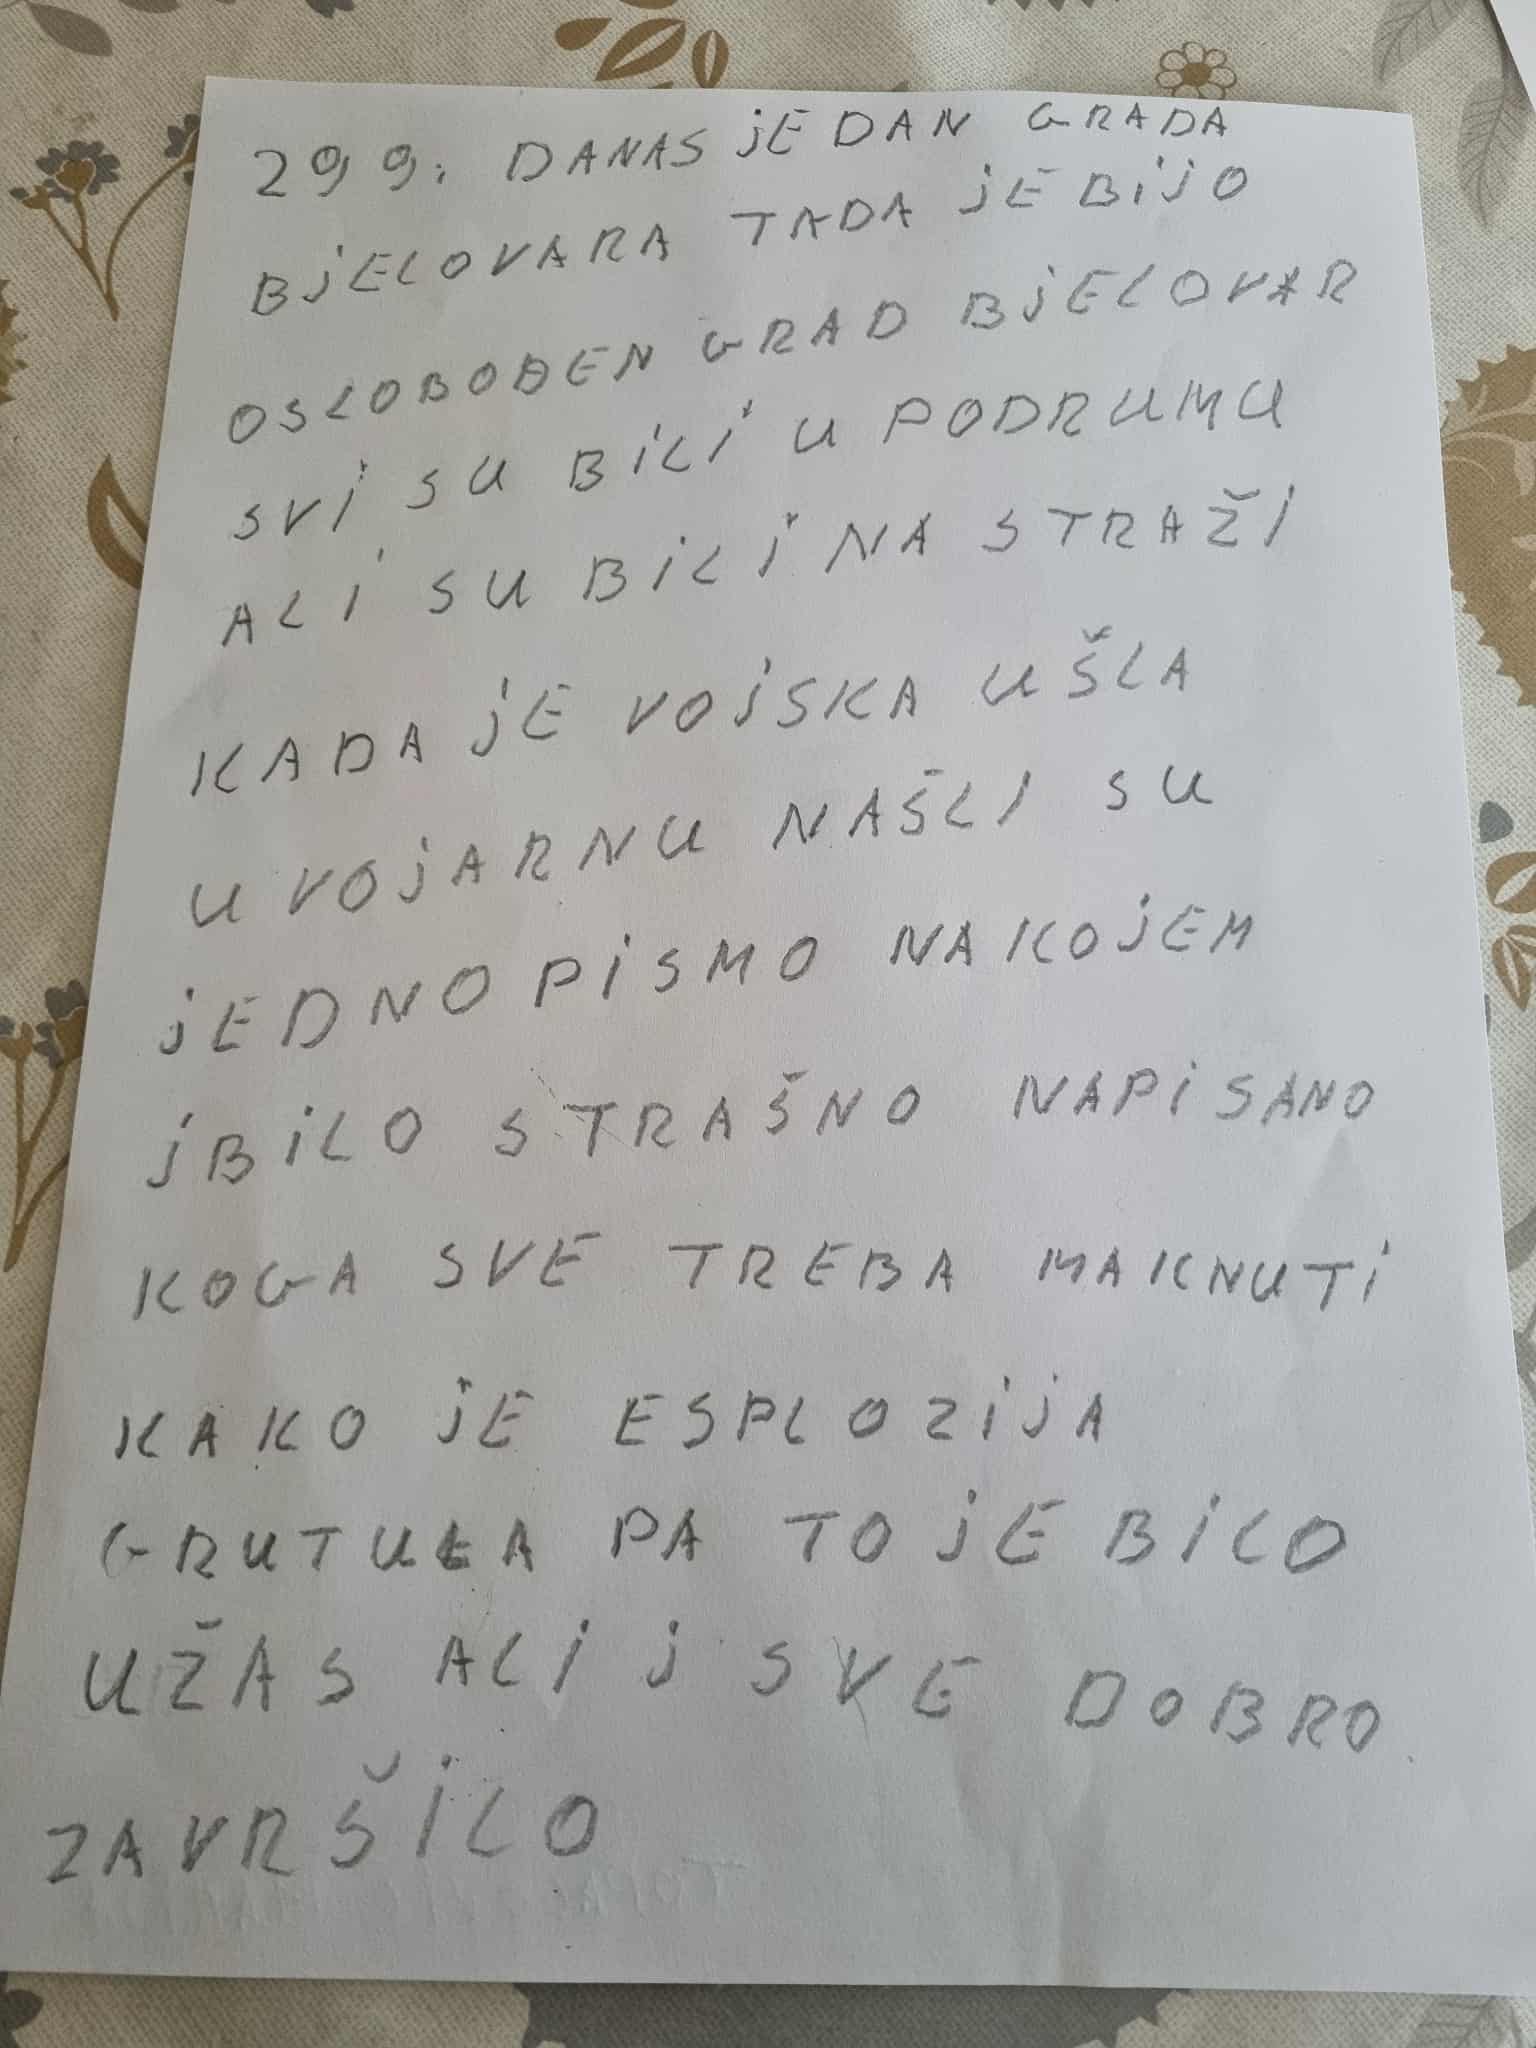 29 9. DANAS jE DAN GRADA
BjELOVARA TADA jE BijO
OSLOBOĐEN GRAD BjELOVAR
SVi SU BiLi U PODRUMU
ALi SU BiLi NA STRAŽI
KADA jE VOjSKA UŠLA
U VOjARNU NAŠLI SU
jEDNO PiSMO NA KOjEM
jBiLO STRAŠNO NAPiSANO
KOGA SVE TREBA MAKNUTi
KAKO jE ESPLOZijA
GRUTULA PA TO jE BiLO
UŽAS ALI j SVE DOBRO
ZAVRŠiLO